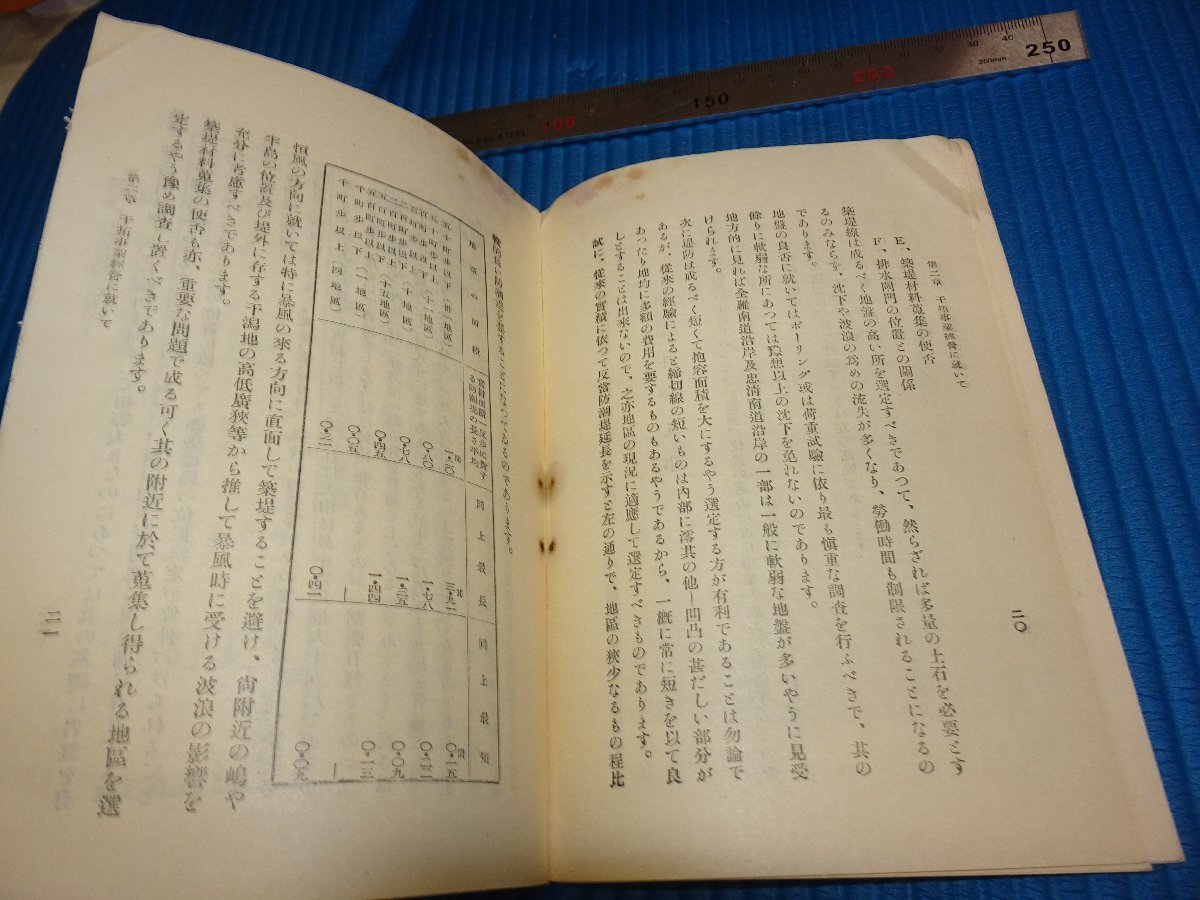 第二章 干拓事業經營に就いて
二〇
E、築堤材料蒐集の便否
F、排水閘門の位置との關係
築堤線は成るべく地盤の高い所を選定すべきであつて、然らざれば多量の土石を必要とす
るのみならず、沈下や波浪の爲めの流失が多くなり、勞働時間も制限されることになるの
であります。
地盤の良否に就いてはボーリング或は荷重試驗に依り最も愼重な調査を行ふべきで、其の
餘りに軟弱な所にあつては豫想以上の沈下を免れないのであります。
地方的に見れば全羅南道沿岸及忠淸南道沿岸の一部は一般に軟弱な地盤が多いやうに見受
けられます。
次に堤防は成るべく短くて抱容面積を大にするやう選定する方が有利であることは勿論で
あるが、從來の經驗によると締切線の短いものは內部に澪其の他凹凸の甚だしい部分が
あつたり地均に多額の費用を要するものもあるやうであるから、一概に常に短きを以て良
しとすることは出來ないので、之亦地區の現況に適應して選定すべきものであります。
試に、從來の實績に依つて反當防潮堤延長を示すと左の通りで、地區の狹少なるもの程比
較的長い防潮堤を要することになつてゐるのであります。
地區の面積
同上最長
同上最短
五十町步以下
一・二〇
三・九二
〇・一五
(十地區)
〇・八〇
一・七八
〇・二二
(十地區)
〇・七八
一・三五
〇・〇九
五百町步以上(十五地區)
〇・四五
一・四四
〇・一三
〇・〇五
千町步以上(四地區)
〇・二二
〇・四一
〇・〇九
恒風の方向に就いては特に暴風の來る方向に直面して築堤することを避け、尙附近の嶋や
半島の位置及び堤外に存する干潟地の高低廣狹等から推して暴風時に受ける波浪の影響を
充分に考慮すべきであります。
築堤材料蒐集の便否も亦、重要な問題で成る可く其の附近に於て蒐集し得られる地區を選
定するやう豫め調査し置くべきであります。
第二章 干拓事業經營に就いて
二一
250
250mm
200
150
100
STEEL